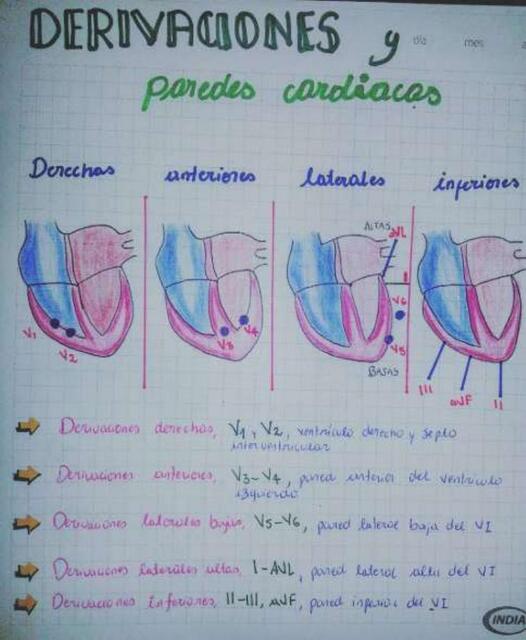 DERIVACIONES y
día mes
paredes cardiacas
Derechas anteriores laterales inferiores
ALTAS aVL
I
V6
V1 V2 V3 V4 V5
BAJAS
III aVF II
Derivaciones derechas, V1 y V2, ventrículo derecho y septo
interventricular
Derivaciones anteriores, V3-V4, pared anterior del ventrículo
izquierdo
Derivaciones laterales bajas, V5-V6, pared lateral baja del VI
Derivaciones laterales altas, I-AVL, pared lateral alta del VI
Derivaciones inferiores, II-III, aVF, pared inferior del VI
INDIA